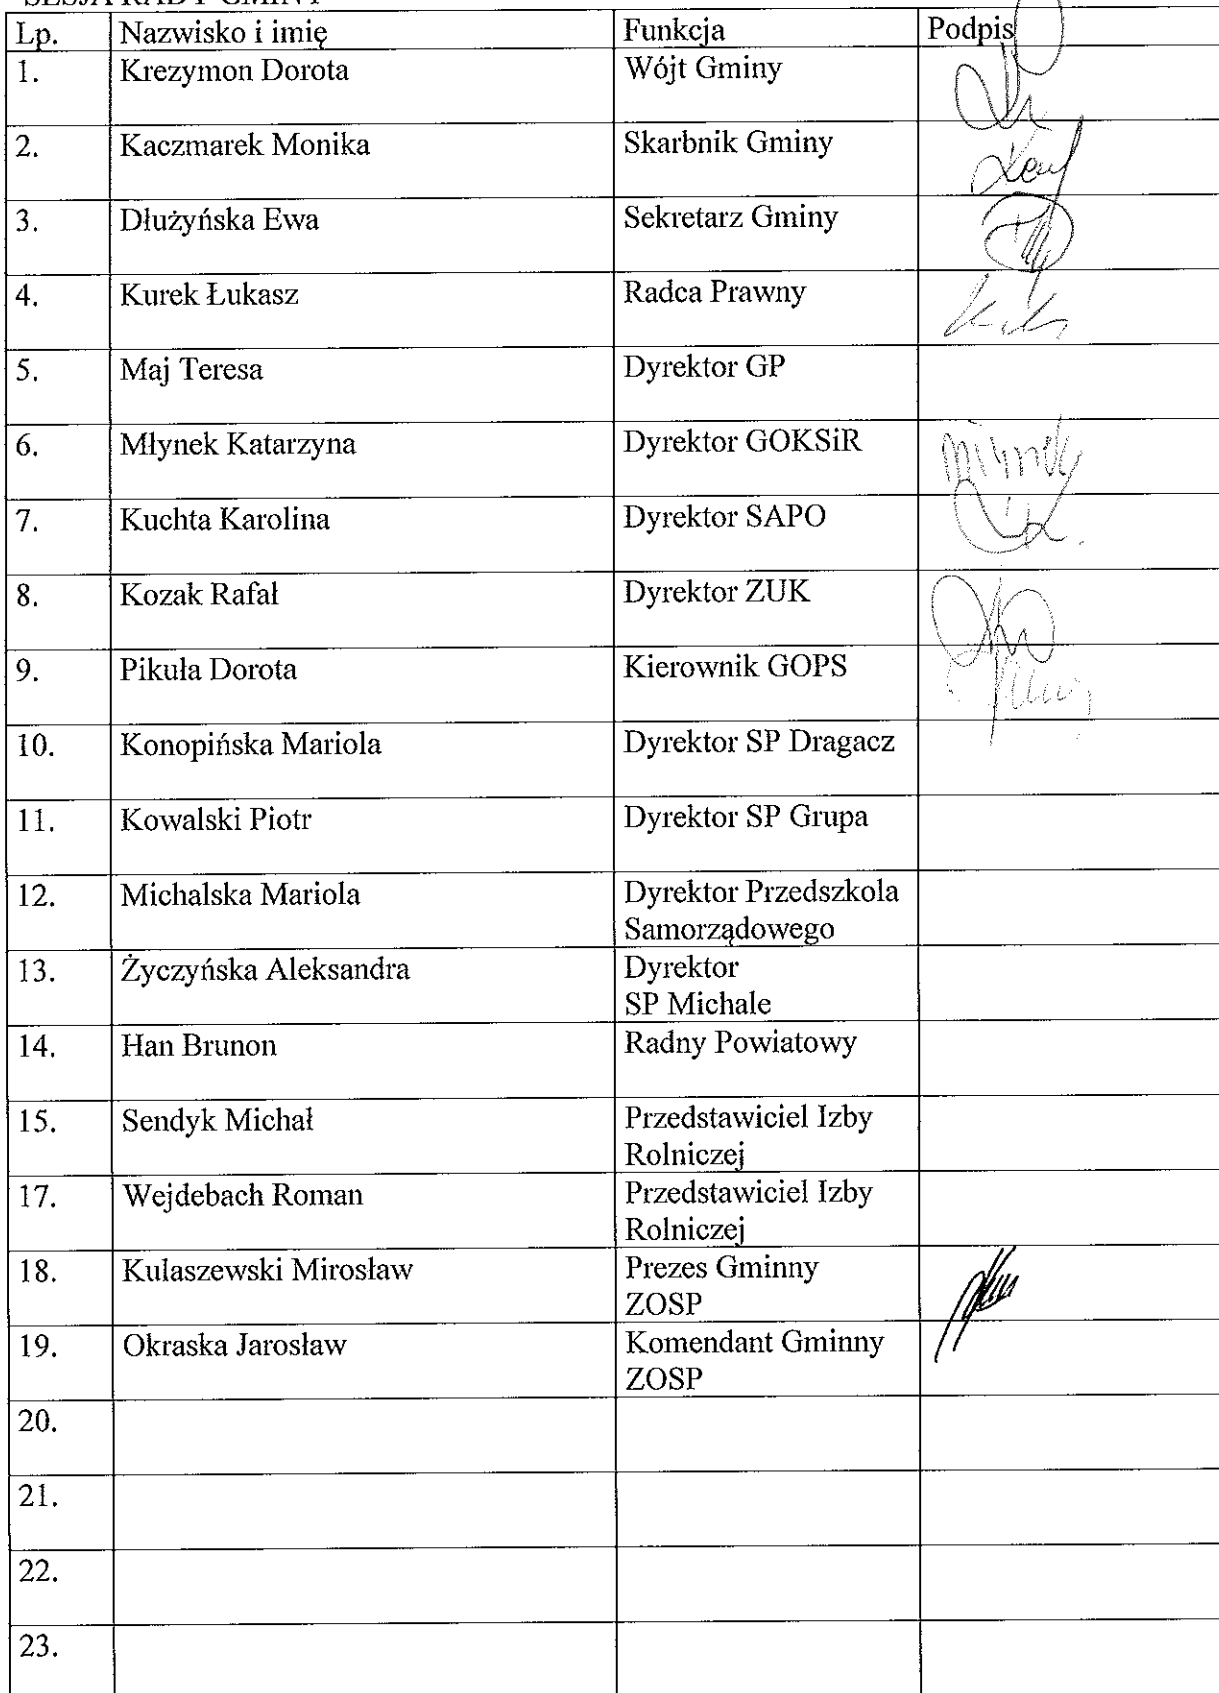 SESJA RADY GMINY
Lp. Nazwisko i imię Funkcja Podpis
1. Krezymon Dorota Wójt Gminy
2. Kaczmarek Monika Skarbnik Gminy
3. Dłużyńska Ewa Sekretarz Gminy
4. Kurek Łukasz Radca Prawny
5. Maj Teresa Dyrektor GP
6. Młynek Katarzyna Dyrektor GOKSiR
7. Kuchta Karolina Dyrektor SAPO
8. Kozak Rafał Dyrektor ZUK
9. Pikuła Dorota Kierownik GOPS
10. Konopińska Mariola Dyrektor SP Dragacz
11. Kowalski Piotr Dyrektor SP Grupa
12. Michalska Mariola Dyrektor Przedszkola
Samorządowego
13. Życzyńska Aleksandra Dyrektor
SP Michale
14. Han Brunon Radny Powiatowy
15. Sendyk Michał Przedstawiciel Izby
Rolniczej
17. Wejdebach Roman Przedstawiciel Izby
Rolniczej
18. Kulaszewski Mirosław Prezes Gminny
ZOSP
19. Okraska Jarosław Komendant Gminny
ZOSP
20.
21.
22.
23.